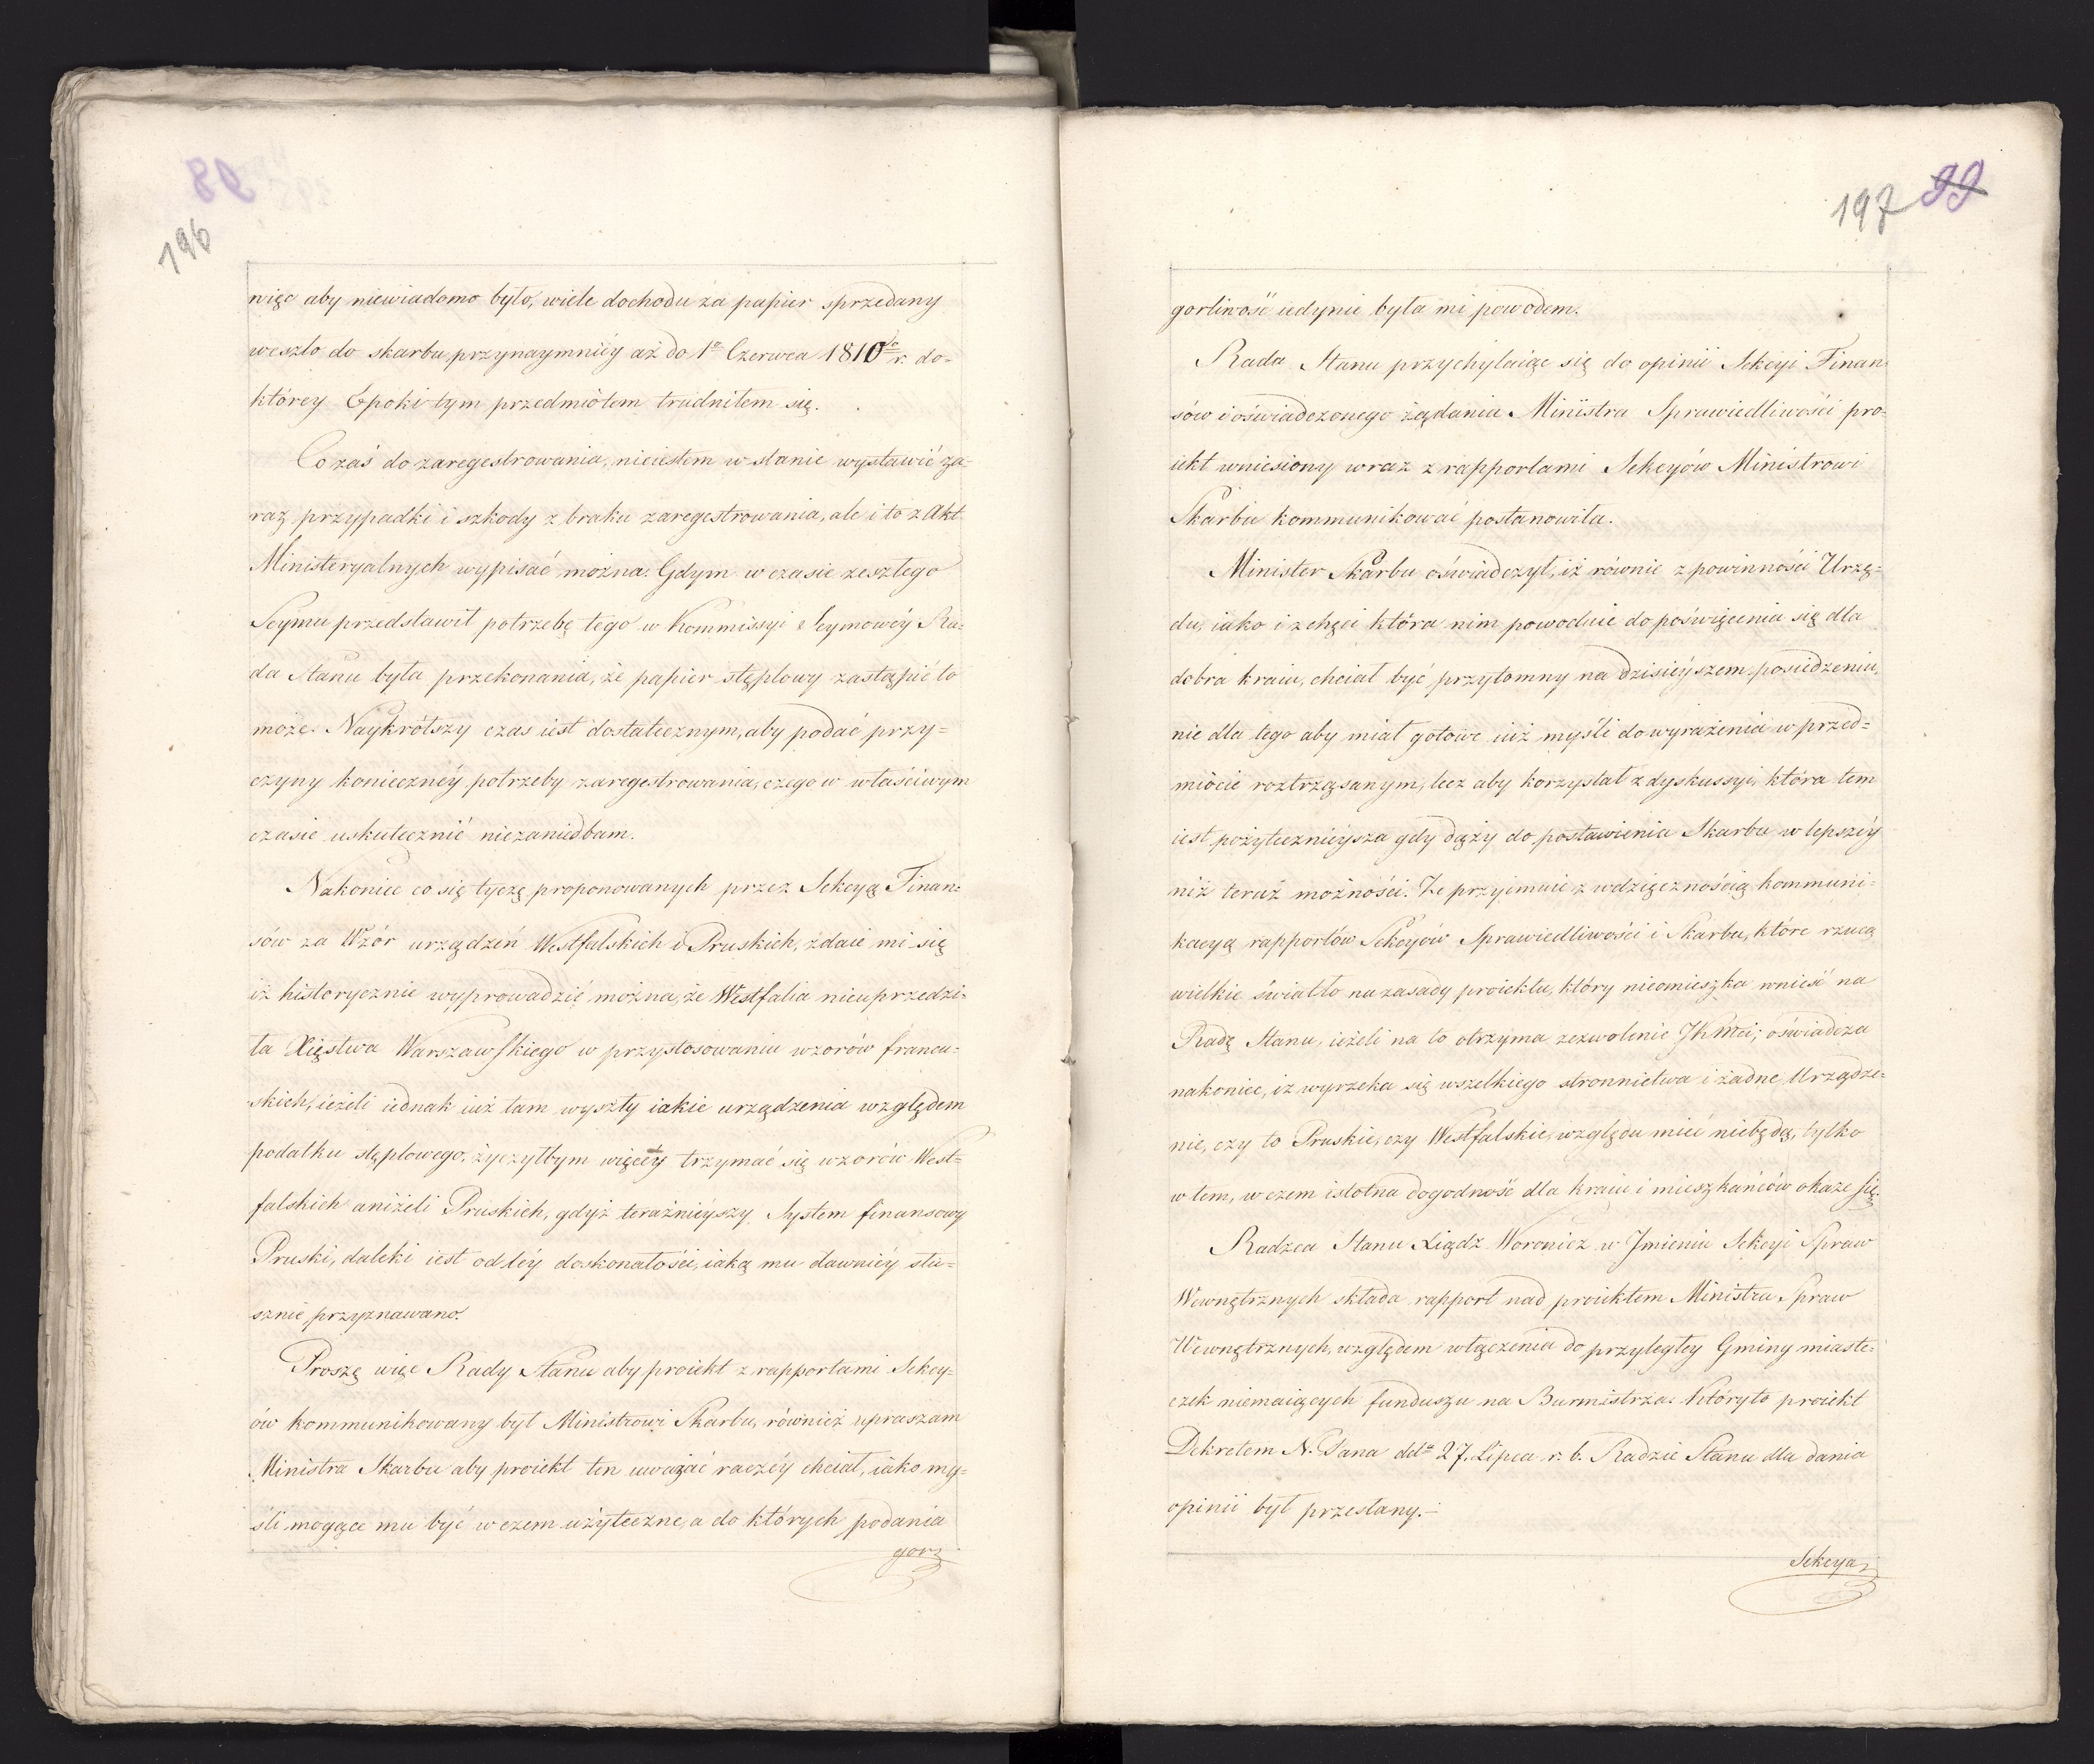 98
196
nięc aby niewiadomo było, wiele dochodu za papier sprzedany
weszło do skarbu przynaymniéy aż do 1º Czerwca 1810 r. do=
którey Epoki tym przedmiotem trudniłem się.
Co zaś do zaregestrowania, nieiestem w stanie wystawić za=
raz przypadki i szkody z braku zaregestrowania, ale i to z Akt
Ministeryalnych wypisać można. Gdym w czasie zeszłego
Seymu przedstawił potrzebę tego w Kommissyi Seymowéy Ra=
da Stanu była przekonania, że papier stęplowy zastąpić to
może. Naykrótszy czas iest dostatecznym, aby podać przy=
czyny koniecznéy potrzeby zaregestrowania, czego w właściwym
czasie uskutecznić niezaniedbam.
Nakoniec co się tyczę proponowanych przez Sekcyą Finan=
sów za Wzór urządzeń Westfalskich i Pruskich, zdaie mi się
iż historycznie wyprowadzić można, że Westfalia nieuprzedzi=
ła Xięstwa Warszawskiego w przystosowaniu wzorów francu=
skich, ieżeli iednak iuż tam wyszły iakie urządzenia względem
podatku stęplowego, życzyłbym więcéy trzymać się wzorów West=
falskich aniżeli Pruskich, gdyż teraźnieyszy System finansowy
Pruski, daleki iest od téy doskonałości, iaką mu dawniéy słu=
sznie przyznawano.
Proszę więc Rady Stanu aby proiekt z rapportami Sekcy=
ów kommunikowany był Ministrowi Skarbu, również upraszam
Ministra Skarbu aby proiekt ten uważać raczéy chciał, iako my=
śli mogące mu być w czem użyteczne, a do których podania
gorz
197 99
gorliwość iedynie była mi powodem.
Rada Stanu przychylaiąc się do opinii Sekcyi Finan=
sów i oświadczonego żądania Ministra Sprawiedliwości pro=
iekt wniesiony wraz z rapportami Sekcyów Ministrowi
Skarbu kommunikować postanowiła.
Minister Skarbu oświadczył, iż równie z powinności Urzę=
du, iako i z chęci która nim powoduie do poświęcenia się dla
dobra kraiu, chciał być przytomny na dzisieyszem posiedzeniu,
nie dla tego aby miał gotowe iuż myśli do wyrażenia w przed=
miocie roztrząsanym, lecz aby korzystał z dyskussyi, która tem
iest pożytecznieysza gdy dąży do postawienia Skarbu w lepszéy
niż teraz możności. Że przyimuie z wdzięcznością kommuni=
kacyą rapportów Sekcyów Sprawiedliwości i Skarbu, które rzucą
wielkie światło na zasady proiektu, który nieomieszka wnieść na
Radę Stanu, ieżeli na to otrzyma zezwolenie JKMci; oświadcza
nakoniec, iż wyrzeka się wszelkiego stronnictwa i żadne Urządze=
nie, czy to Pruskie, czy Westfalskie, względu mieć niebędą, tylko
w tem, w czem istotna dogodność dla kraiu i mieszkańców okaże się.
Radzca Stanu Xiądz Woronicz w Jmieniu Sekcyi Spraw
Wewnętrznych składa rapport nad proiektem Ministra Spraw
Wewnętrznych, względem włączenia do przyległey Gminy miaste=
czek niemaiących funduszu na Burmistrza. Który to proiekt
Dekretem N. Pana ddº 27. Lipca r. b. Radzie Stanu dla dania
opinii był przesłany.
Sekcya